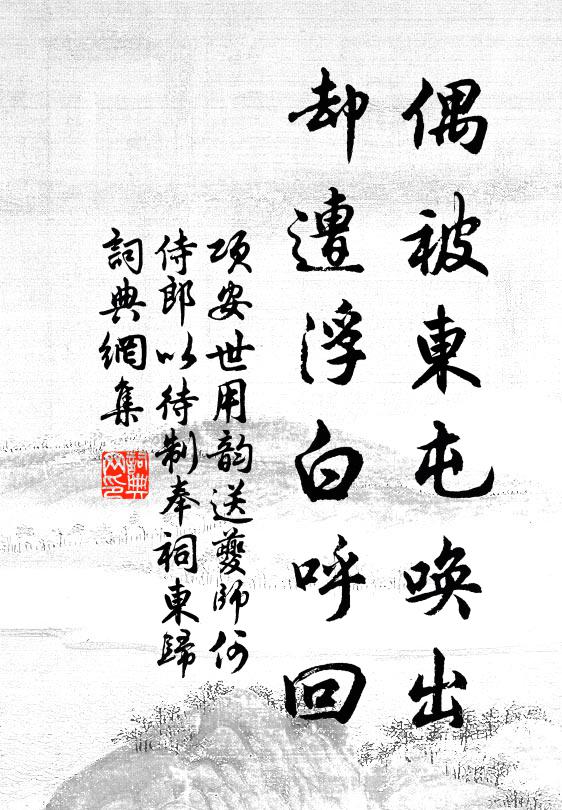 偶被東屯喚出
却遭浮白呼回
項安世用韵送夔師何
侍郎以待制奉祠東歸
詞典網集